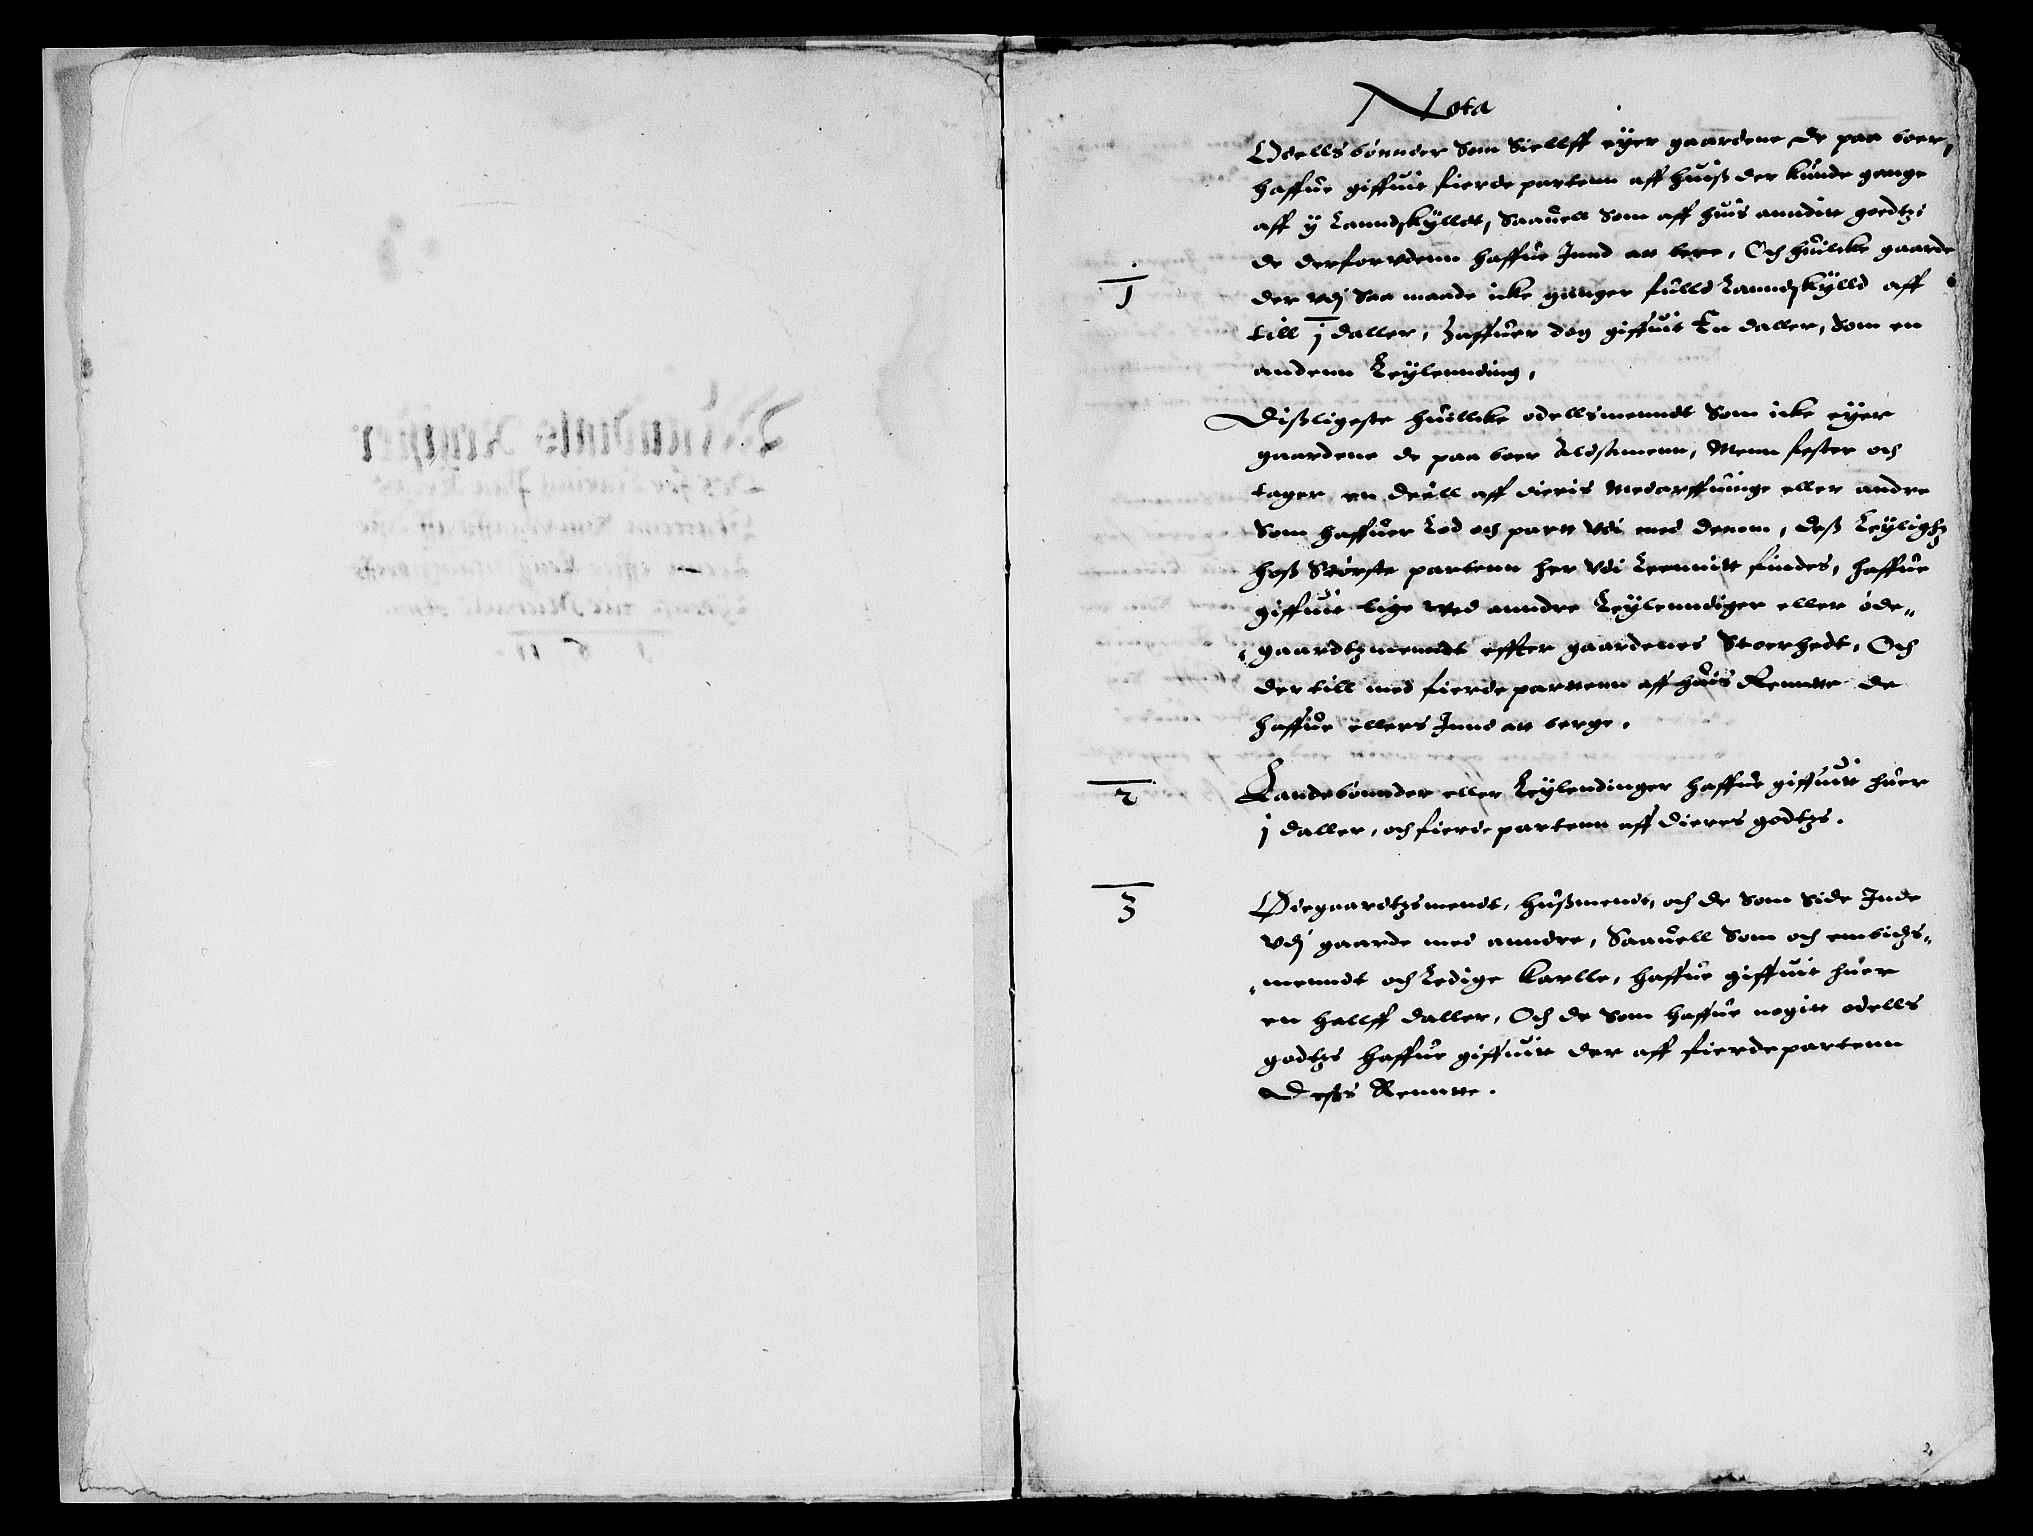 Nota
Odellsbønnder Som Siellff eÿer gaardene de paa boer,
haffue giffuit fierde partenn aff huiß der kunde gange
aff ÿ Lanndskÿlldt, Saauell Som aff huis annditt goedtzs
de derforudenn haffue Innd att bere, Och huilcke gaarde
1
der vdj Saa maade icke ganger fulld Lanndskÿlld aff
till j daller, haffuer dog giffuit En daller, Som en
andenn Leÿlennding,
Dißligeste huillcke odellsmenndt Som icke eÿer
gaardene de paa boer, Menn fester och
tager en deell aff dieris Medarffuinge eller andre
Som haffuer Lod och partt vdi med denom, deß Leÿlighz
hoß Største partenn her vdi Leennitt findes, haffue
giffuit lige wed anndre Leÿlenndiger eller øde„
„gaardtzmenndt effter gaardenes Stoerhedt, Och
dertill med fierde parttenn aff huis Renntte de
haffue ellers Innd att berge.
2
Landebønnder eller Leÿlendinger haffue giffuitt huer
j daller, och fierde partenn aff dieres godtzs.
3
Ødegaardtzsmendt, hußmendt, och de Som Side Inde
vdj gaarde med anndre, Saauell Som och embidzs„
„menndt och Ledige karlle, haffue giffuit huer
en hallff daller, Och de Som haffue nogitt odells
godtzs haffue giffuitt der aff fierdepartenn
Dessis Renntte.
2